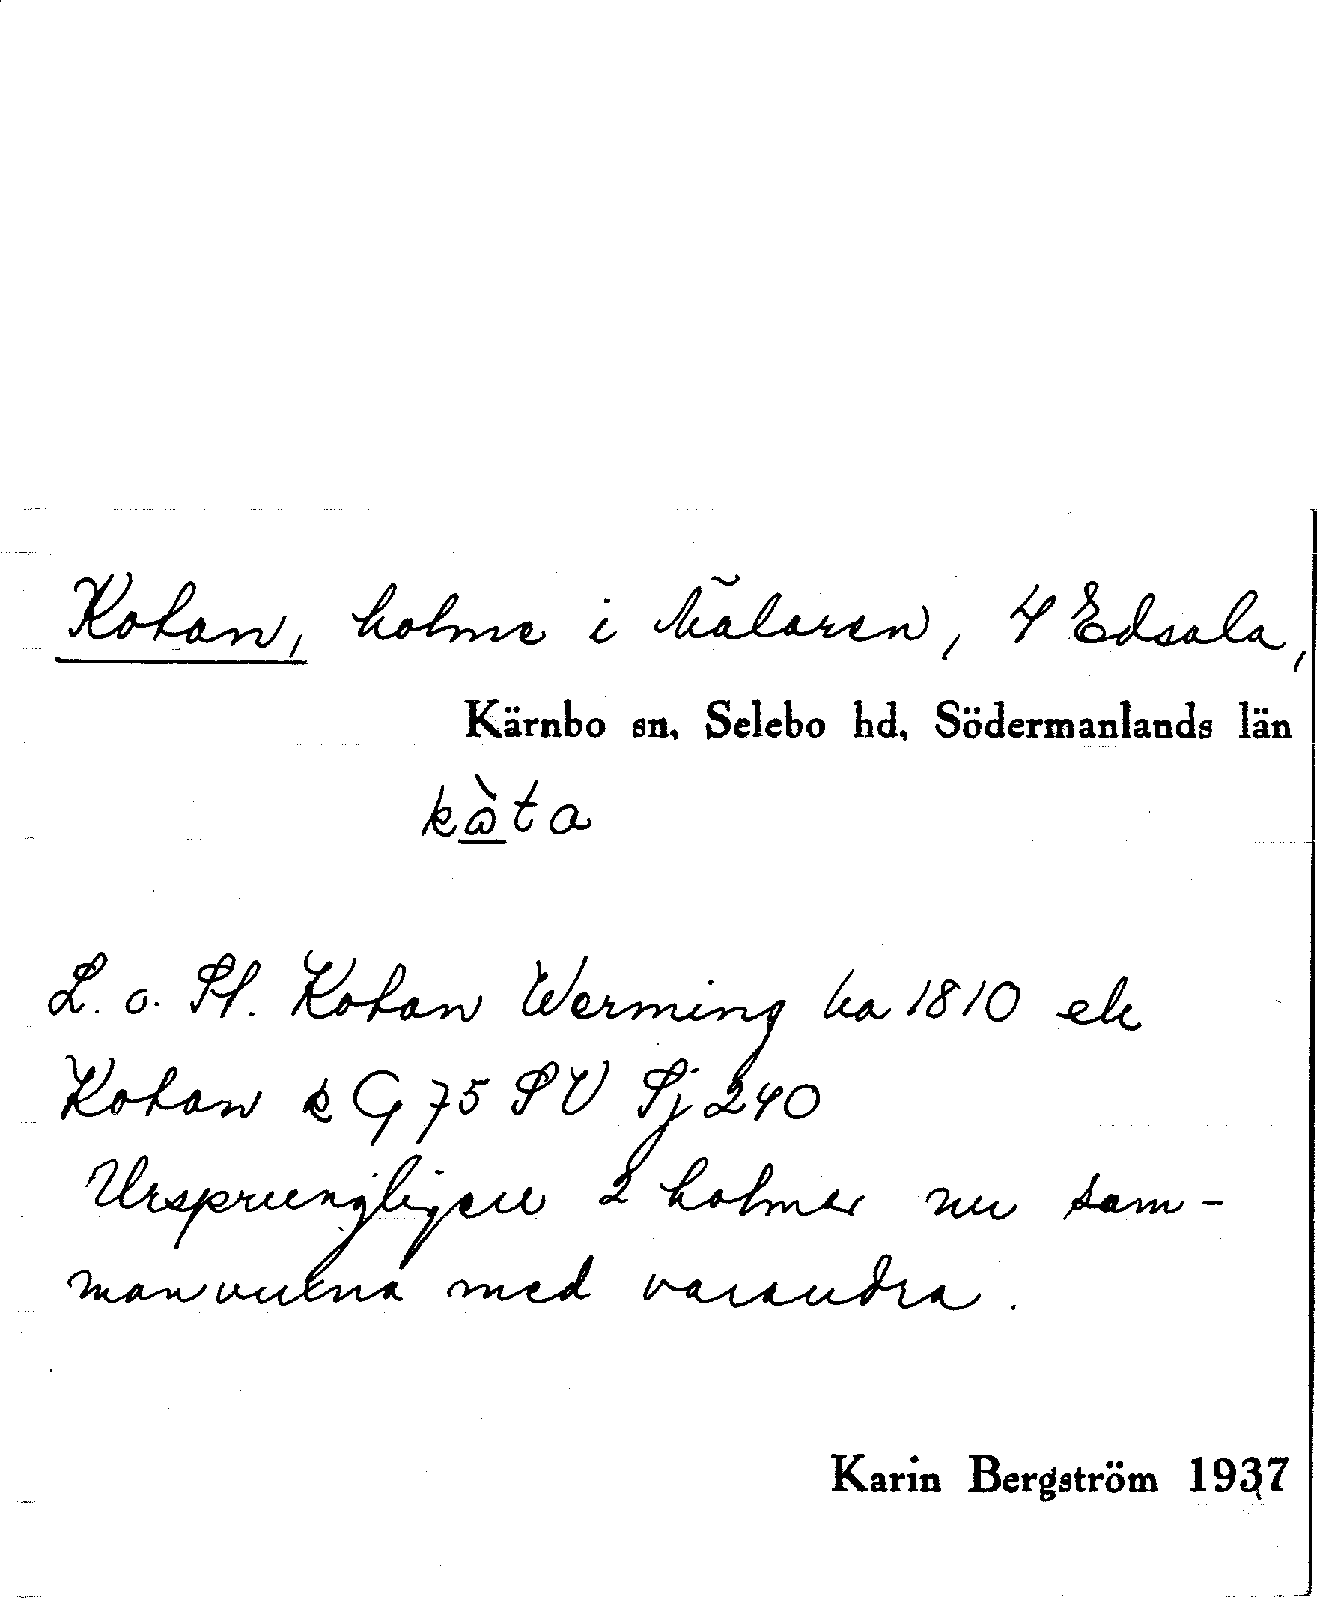 Kotan, holme i Mälaren, 4 Edsala,
Kärnbo sn, Selebo hd, Södermanlands län
kàta
L. o. St. Kotan Werming ka 1810 ek
Kotan k G 75 SV Sj 240
Ursprungligen 2 holmar nu sam-
manvuxna med varandra.
Karin Bergström 1937